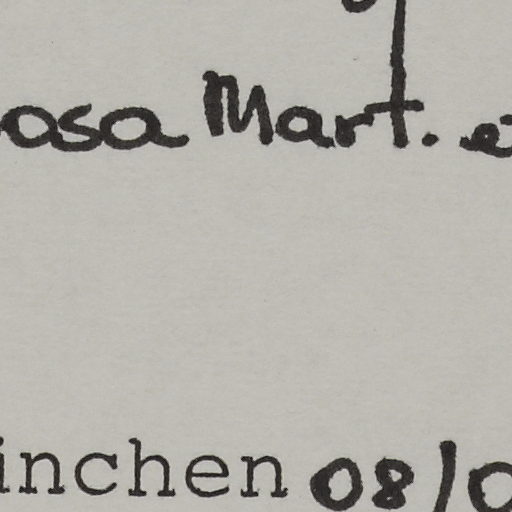 asa Mart. e
inchen 08/0